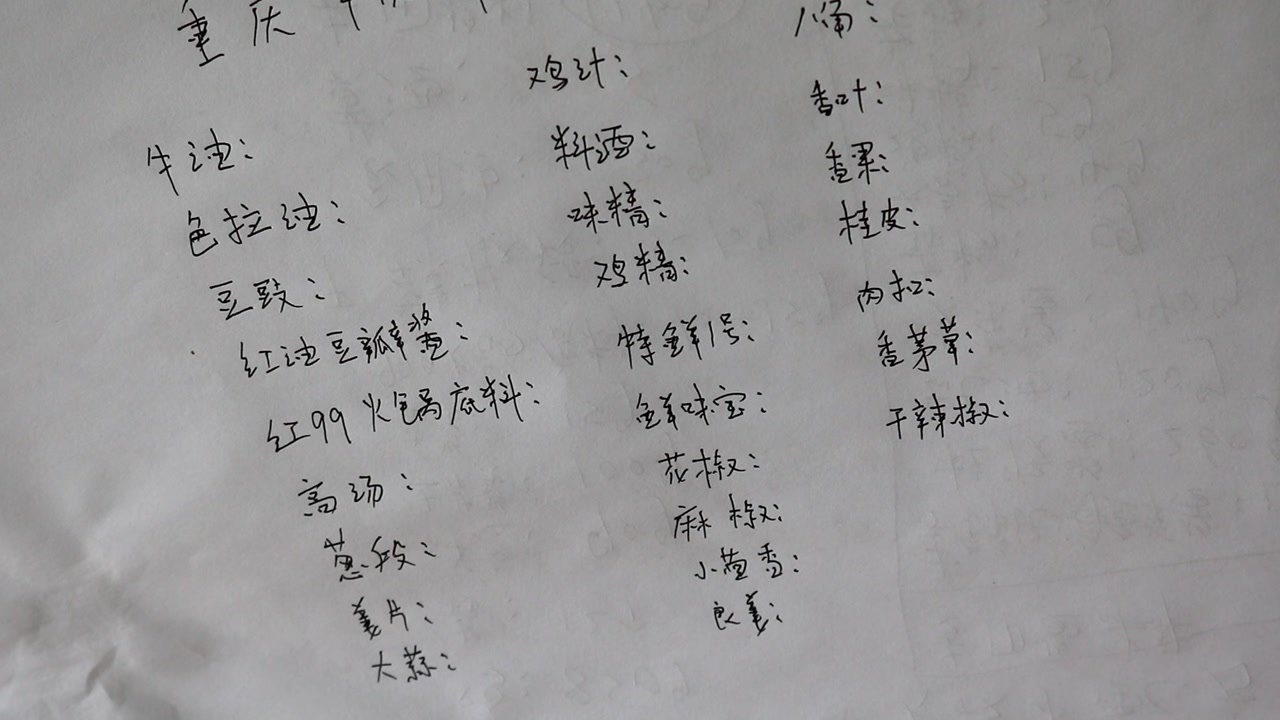 重庆
牛油：
色拉油：
豆豉：
红油豆瓣酱：
红99火锅底料：
高汤：
葱段：
姜片：
大蒜：
鸡汁：
料酒：
味精：
鸡精：
特鲜1号：
鲜味宝：
花椒：
麻椒：
小茴香：
良姜：
八角：
香叶：
香果：
桂皮：
肉扣：
香茅草：
干辣椒：